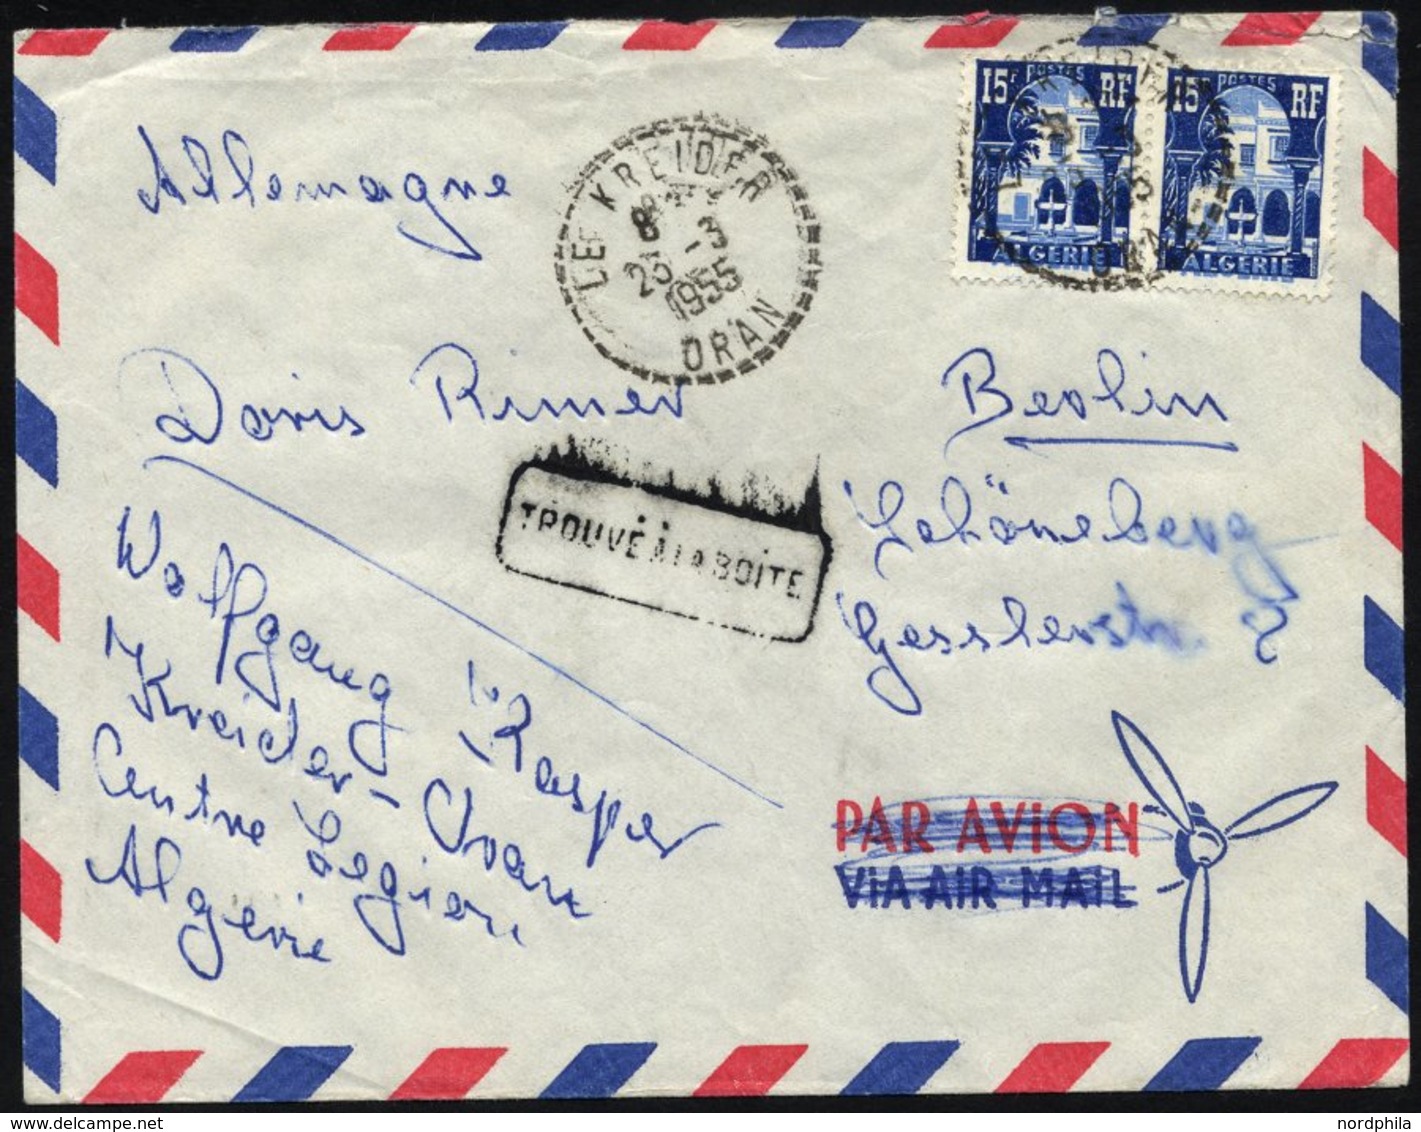 15F POSTES RF
ALGERIE
15F POSTES RF
ALGERIE
LE KREIDER
8H
23 -3
1955
ORAN
Allemagne
Doris Rimer
Berlin
TROUVÉ À LA BOITE
Schöneberg
Gesslerstr. 2
Wolfgang Kasper
Kreider-Oran
Centre Legion
Algerie
PAR AVION
VIA AIR MAIL
nordphila